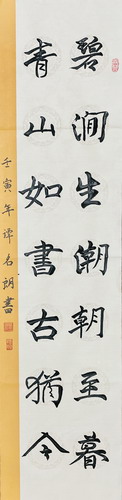 碧澗生潮朝至暮
青山如書古猶今
壬寅年譚名朗書